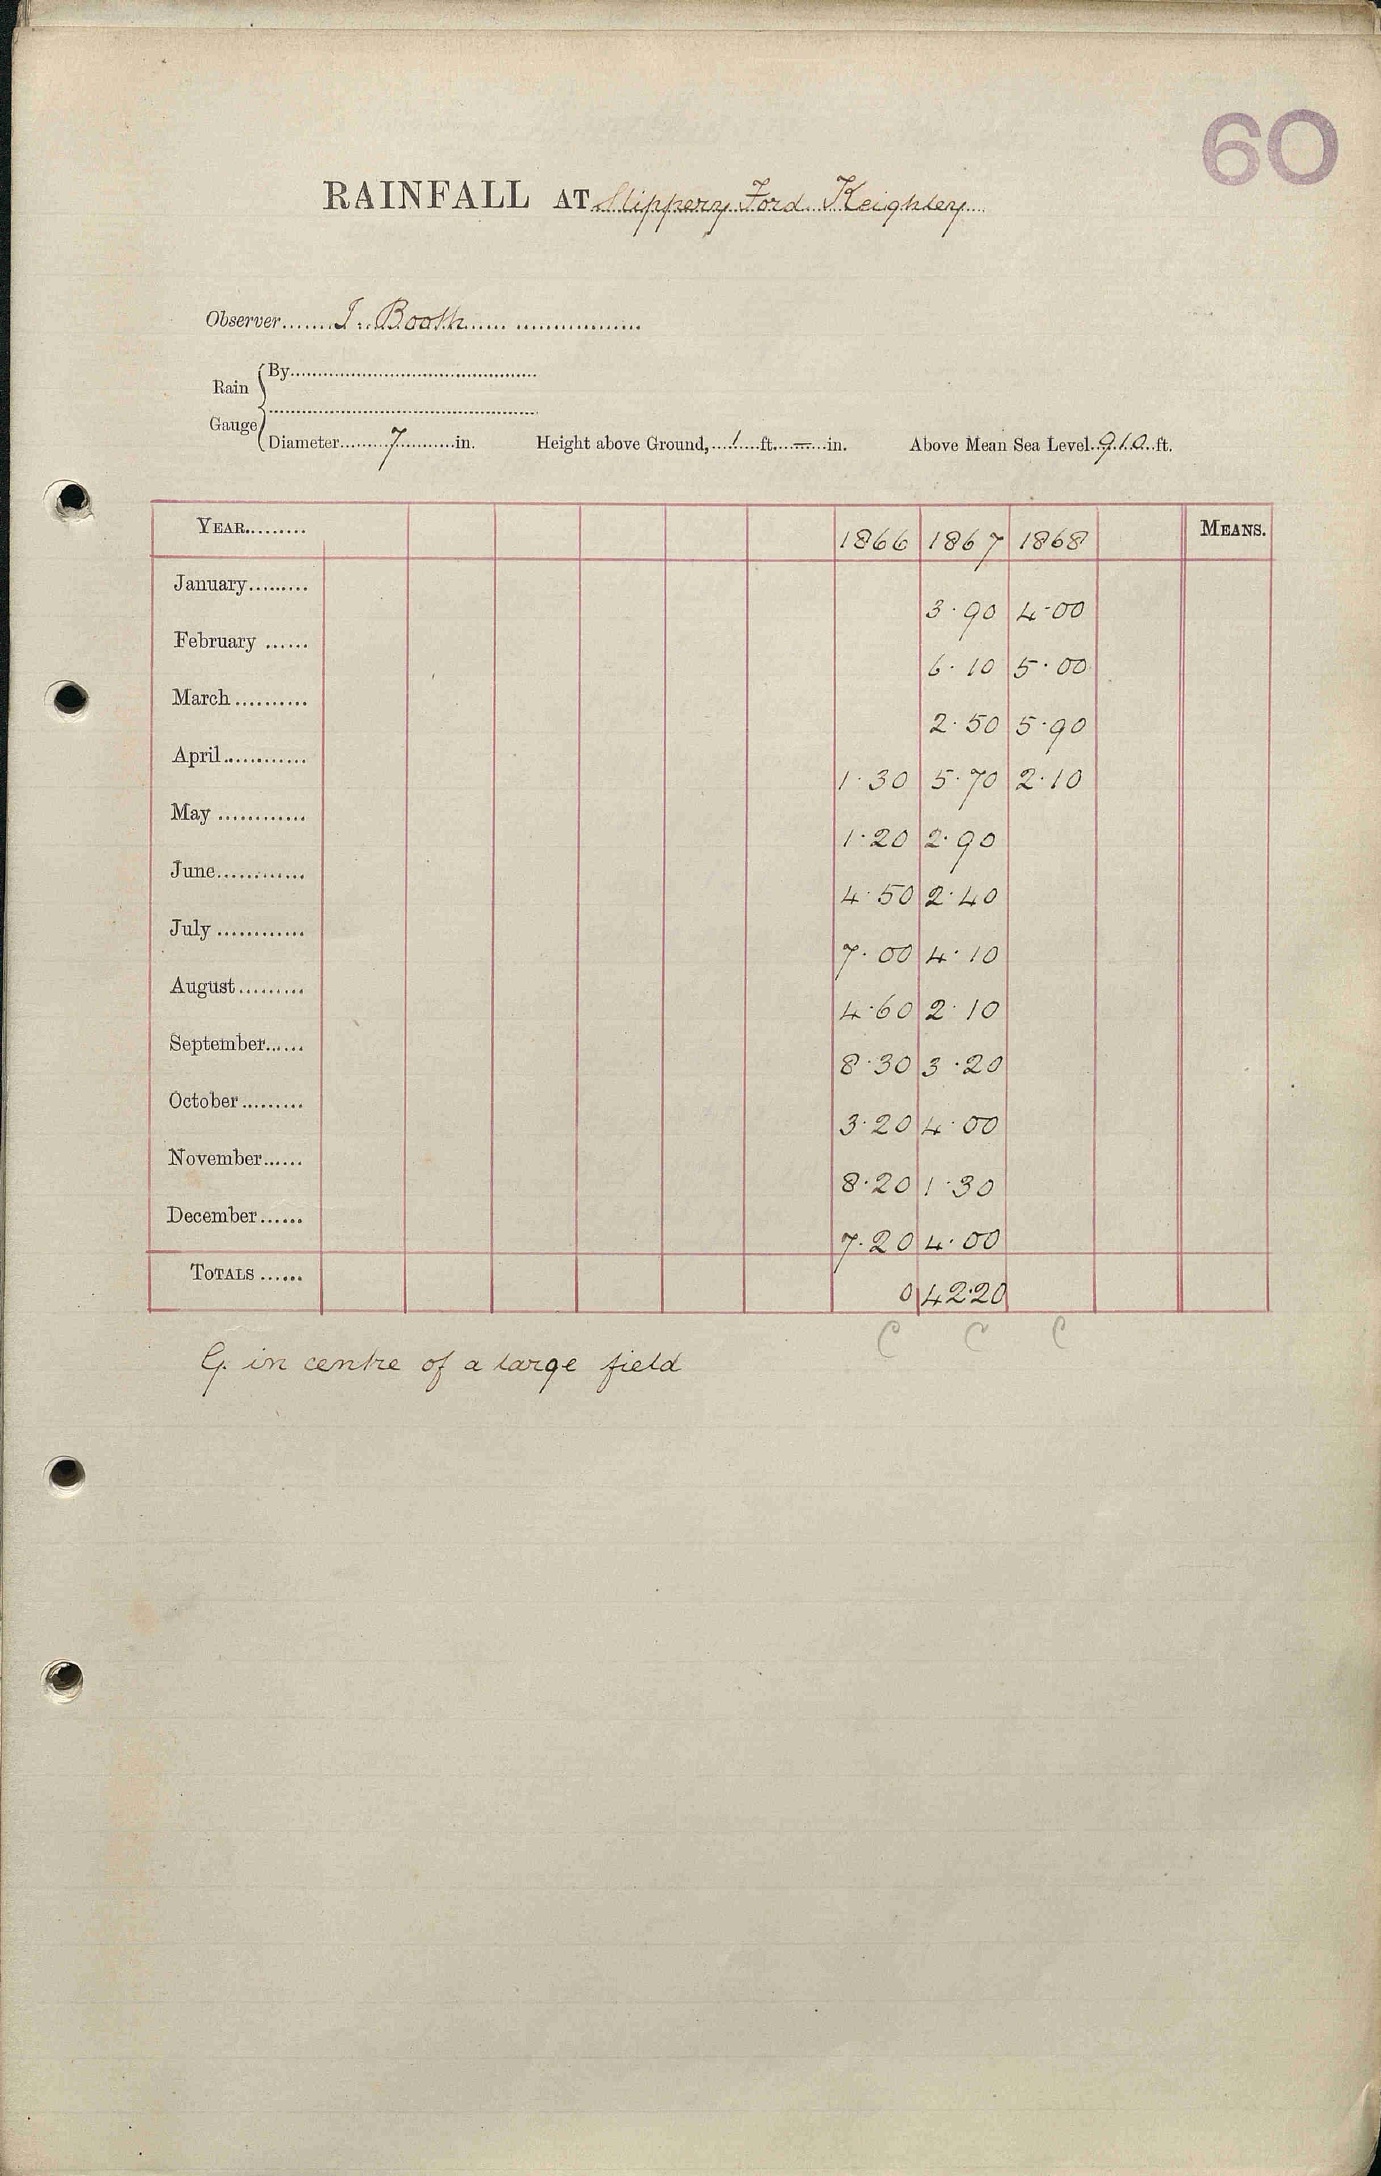 60
RAINFALL AT Slippery Ford Keighley
Observer.......I. Booth...... .................
Rain Gauge { By..........................................
.............................................
Diameter.........7..........in. Height above Ground,....1....ft....—...in. Above Mean Sea Level..910..ft.
YEAR......... 1866 1867 1868 MEANS.
January......... 3.90 4.00
February ...... 6.10 5.00
March .......... 2.50 5.90
April............ 1.30 5.70 2.10
May ............ 1.20 2.90
June............ 4.50 2.40
July ............ 7.00 4.10
August......... 4.60 2.10
September...... 8.30 3.20
October ......... 3.20 4.00
November...... 8.20 1.30
December...... 7.20 4.00
TOTALS ...... 0 42.20
C C C
G. in centre of a large field